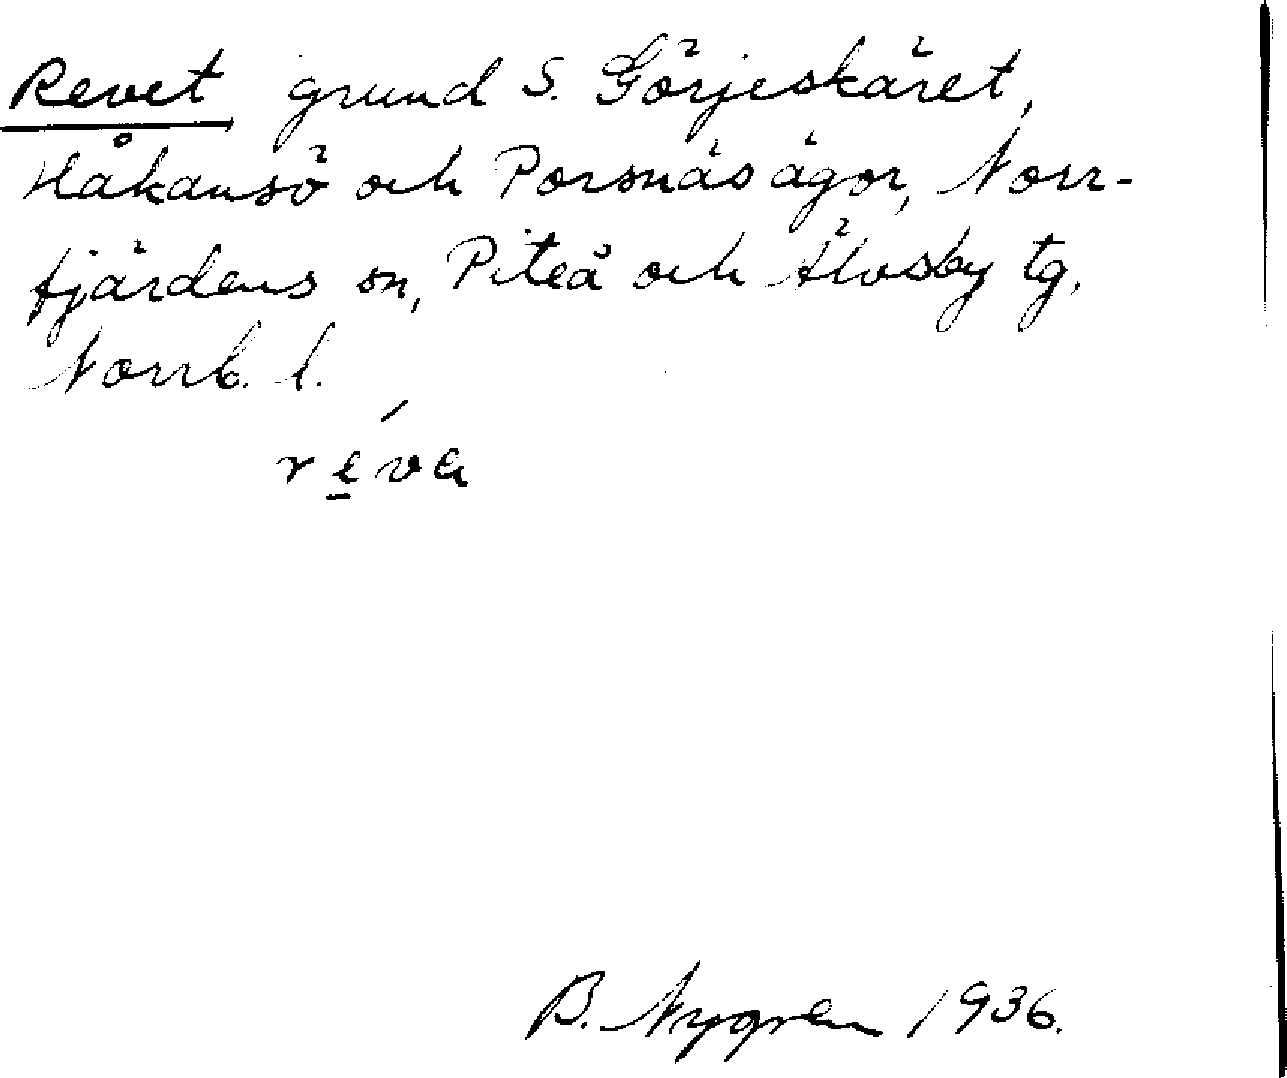 Revet grund S. Görjeskäret,
Håkansö och Porsnäs ägor, Norr-
fjärdens sn, Piteå och Älvsby tg,
Norrb. l.
re̱´va
B. Nygren 1936.